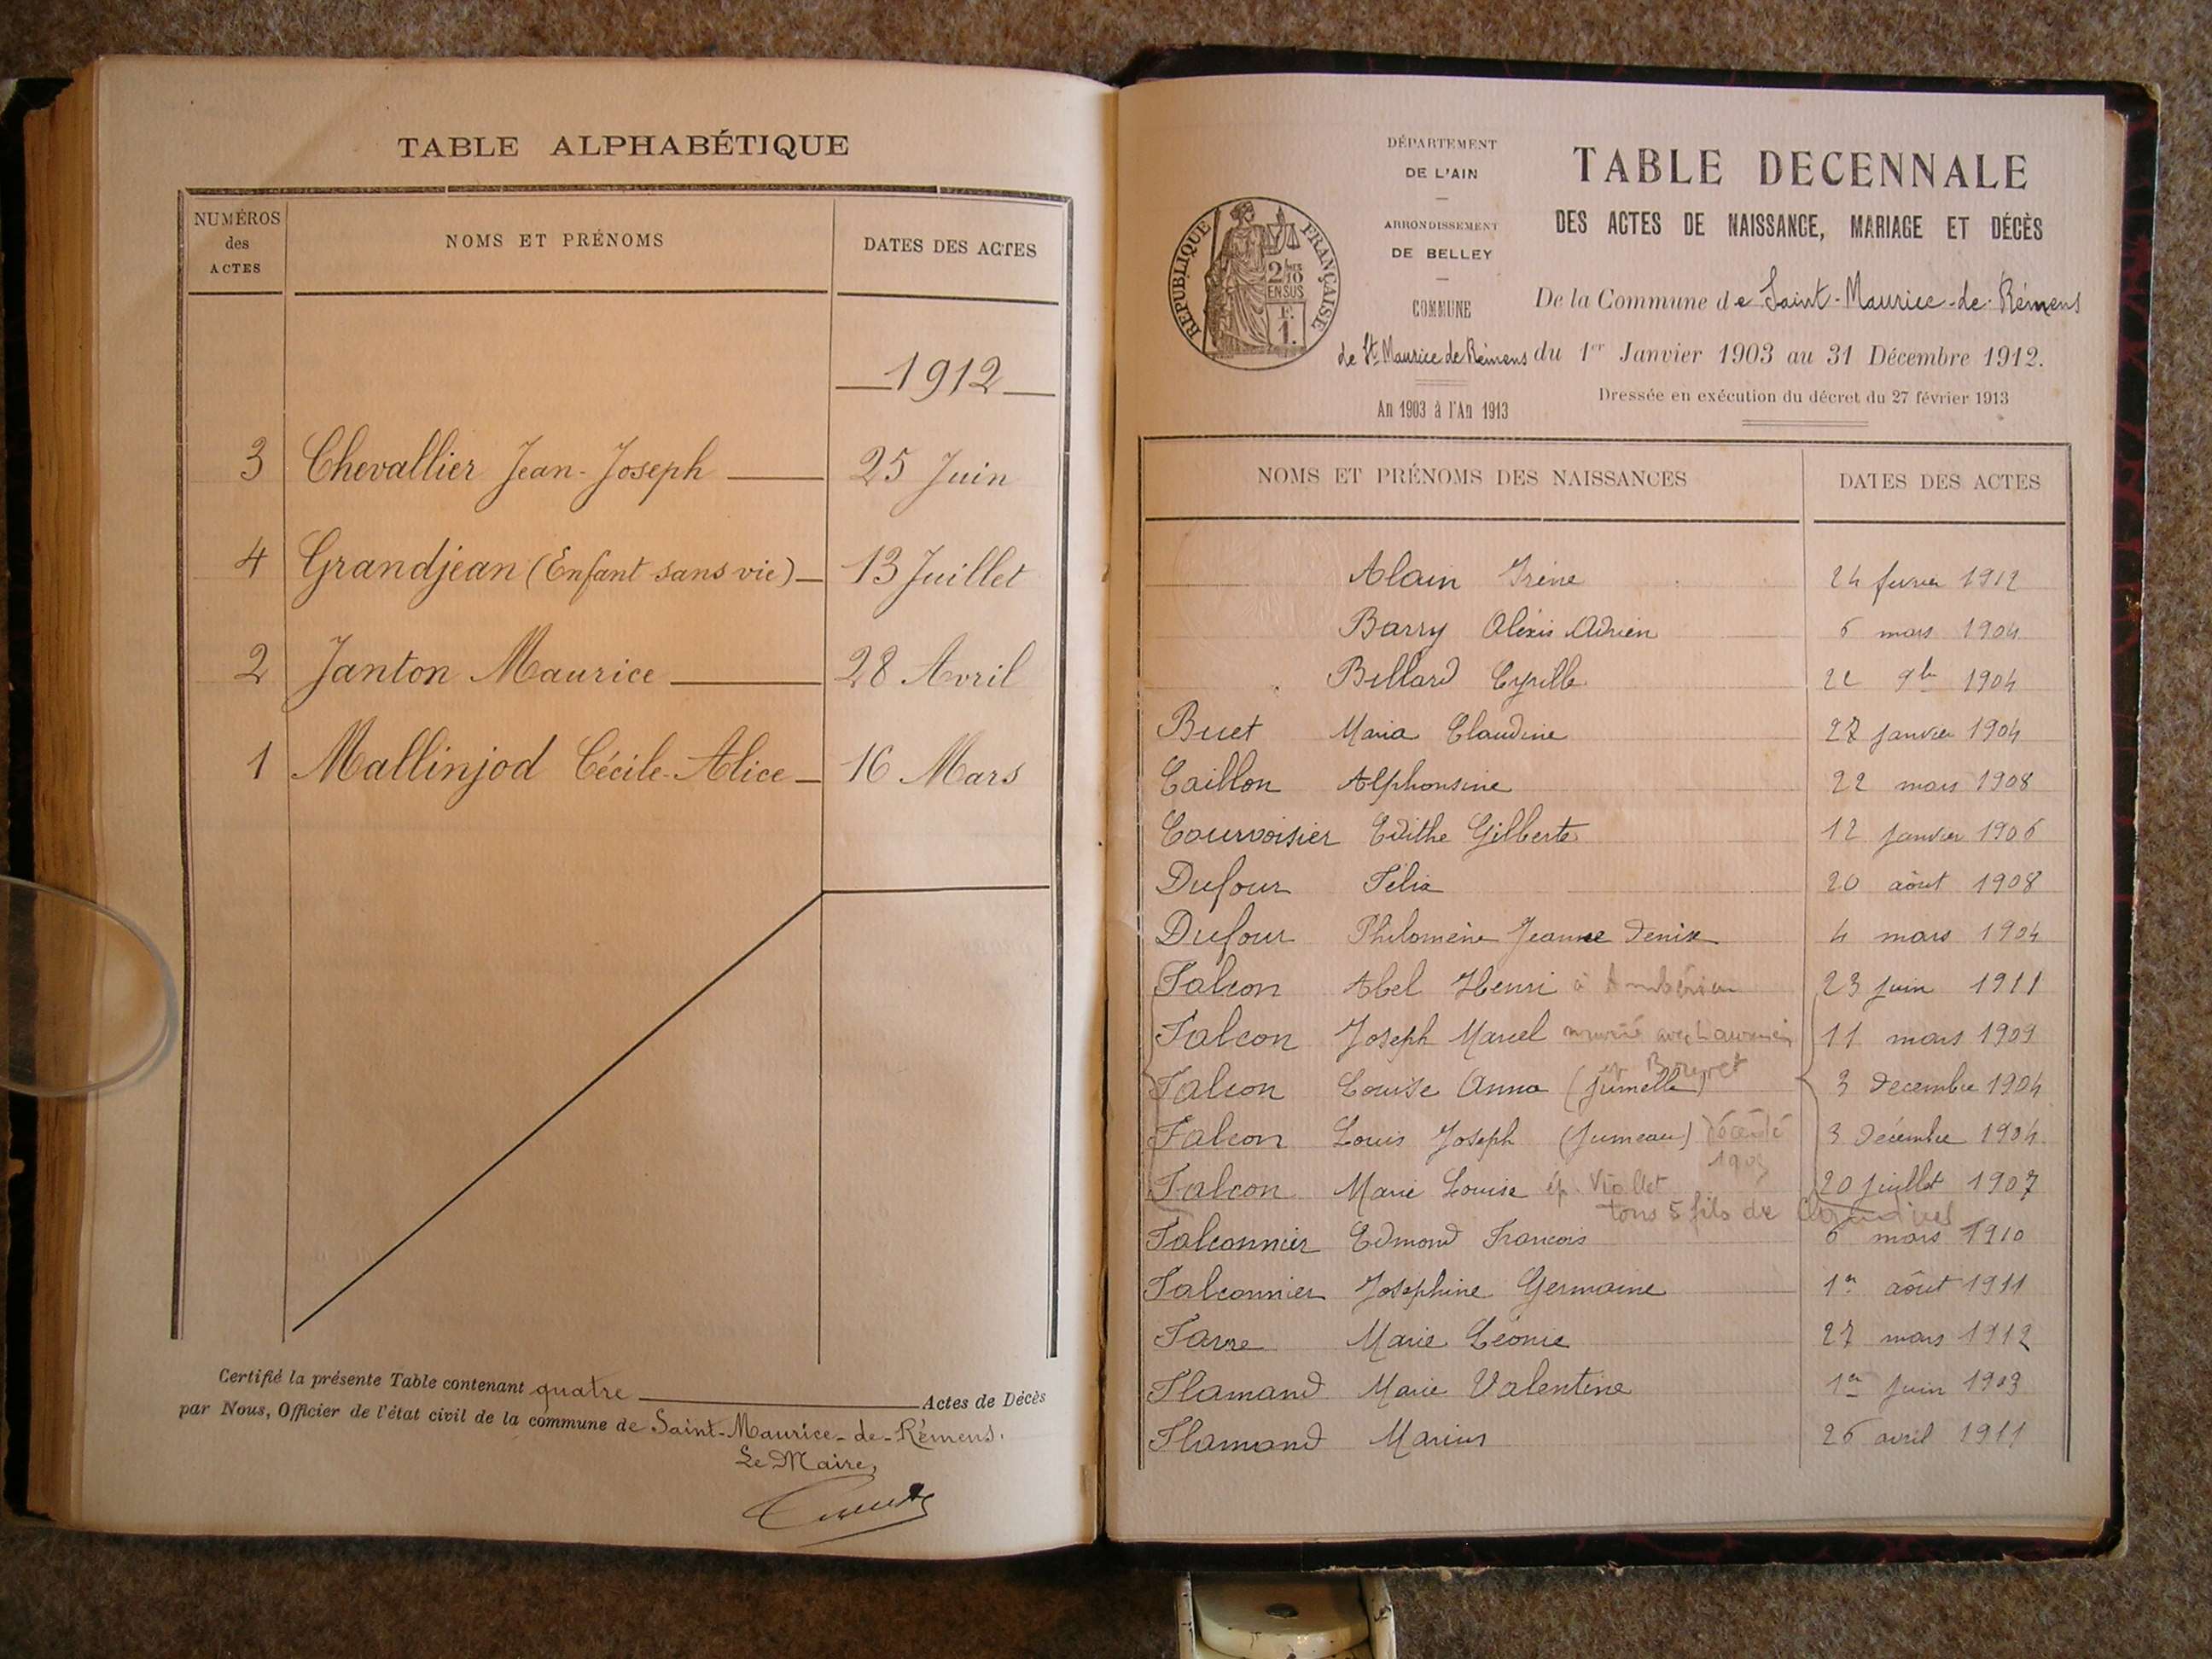 TABLE ALPHABÉTIQUE
NUMÉROS des ACTES NOMS ET PRÉNOMS DATES DES ACTES
1912
3 Chevallier Jean-Joseph 25 Juin
4 Grandjean (Enfant sans vie) 13 Juillet
2 Janton Maurice 28 Avril
1 Mallinjod Cécile-Alice 16 Mars
Certifié la présente Table contenant quatre Actes de Décès
par Nous, Officier de l'état civil de la commune de Saint-Maurice-de-Rémens.
Le Maire,
RÉPUBLIQUE FRANÇAISE
2/10
EN SUS
F.
1.
DÉPARTEMENT
DE L'AIN
ARRONDISSEMENT
DE BELLEY
COMMUNE
de St Maurice de Rémens
An 1903 à l'An 1913
TABLE DECENNALE
DES ACTES DE NAISSANCE, MARIAGE ET DÉCÈS
De la Commune de Saint-Maurice-de-Rémens
du 1er Janvier 1903 au 31 Décembre 1912.
Dressée en exécution du décret du 27 février 1913
NOMS ET PRÉNOMS DES NAISSANCES DATES DES ACTES
Alain Irène 24 fevrier 1912
Barry Alexis Adrien 6 mars 1904
Billard Cyrille 9b 1904
Buet Maria Claudine 27 janvier 1904
Caillon Alphonsine 22 mars 1908
Courvoisier Edithe Gilberte 12 janvier 1906
Dufour Félix 20 août 1908
Dufour Philomène Jeanne Denise 4 mars 1904
Falcon Abel Henri à Ambérieu 23 juin 1911
Falcon Joseph Marcel marié avec 11 mars 1909
Falcon Louise Anna (jumelle) ép Bouvret 3 decembre 1904
Falcon Louis Joseph (jumeau) décédé 3 décembre 1904
Falcon Marie Louise ép. Viollet 20 juillet 1907
tous 5 fils de
Falconnier Edmond Francois 6 mars 1910
Falconnier Joséphine Germaine 1er août 1911
Favre Marie Léonie 27 mars 1912
Flamand Marie Valentine 1er juin 1903
Flamand Marius 26 avril 1911